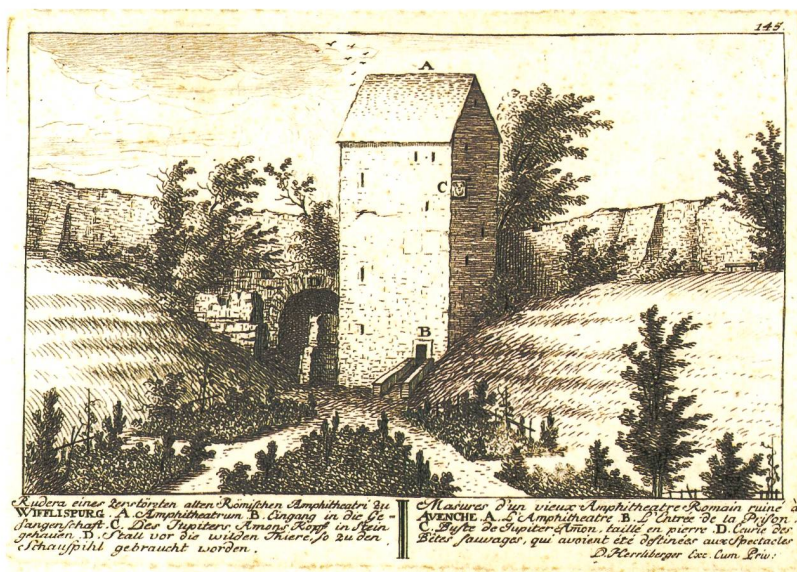 145.
A
C
B
Rudera eines Zerstörten alten Römischen Amphitheatri zu
WIFFLISPURG. A. Amphitheatrum. B. Eingang in die Ge
fangenschaft. C. Des Jupiters Amons Kopf in Stein
gehauen. D. Stall vor die wilden Thiere, so zu den
Schauspihl gebraucht worden.
Masures d'un vieux Amphitheatre Romain ruiné à
AVENCHE. A. L'Amphitheatre. B. L'Entrée de la Prison
C. Buste de Jupiter Amon, taillé en pierre D. Ecurie des
Bêtes sauvages, qui avoient été destinées aux Spectacles
D. Herrliberger Exc. Cum Priv: